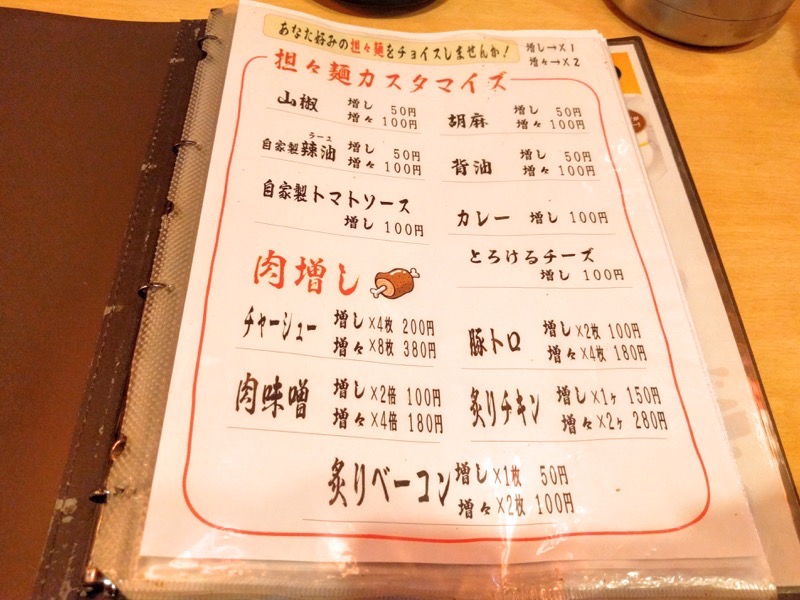 あなた好みの担々麺をチョイスしませんか!
増し→×1
増々→×2
担々麺カスタマイズ
山椒 増し 50円
増々 100円
胡麻 増し 50円
増々 100円
ラーユ
自家製辣油 増し 50円
増々 100円
背油 増し 50円
増々 100円
自家製トマトソース
増し 100円
カレー 増し 100円
とろけるチーズ
増し 100円
肉増し
チャーシュー 増し×4枚 200円
増々×8枚 380円
豚トロ 増し×2枚 100円
増々×4枚 180円
肉味噌 増し×2倍 100円
増々×4倍 180円
炙りチキン 増し×1ヶ 150円
増々×2ヶ 280円
炙りベーコン 増し×1枚 50円
増々×2枚 100円